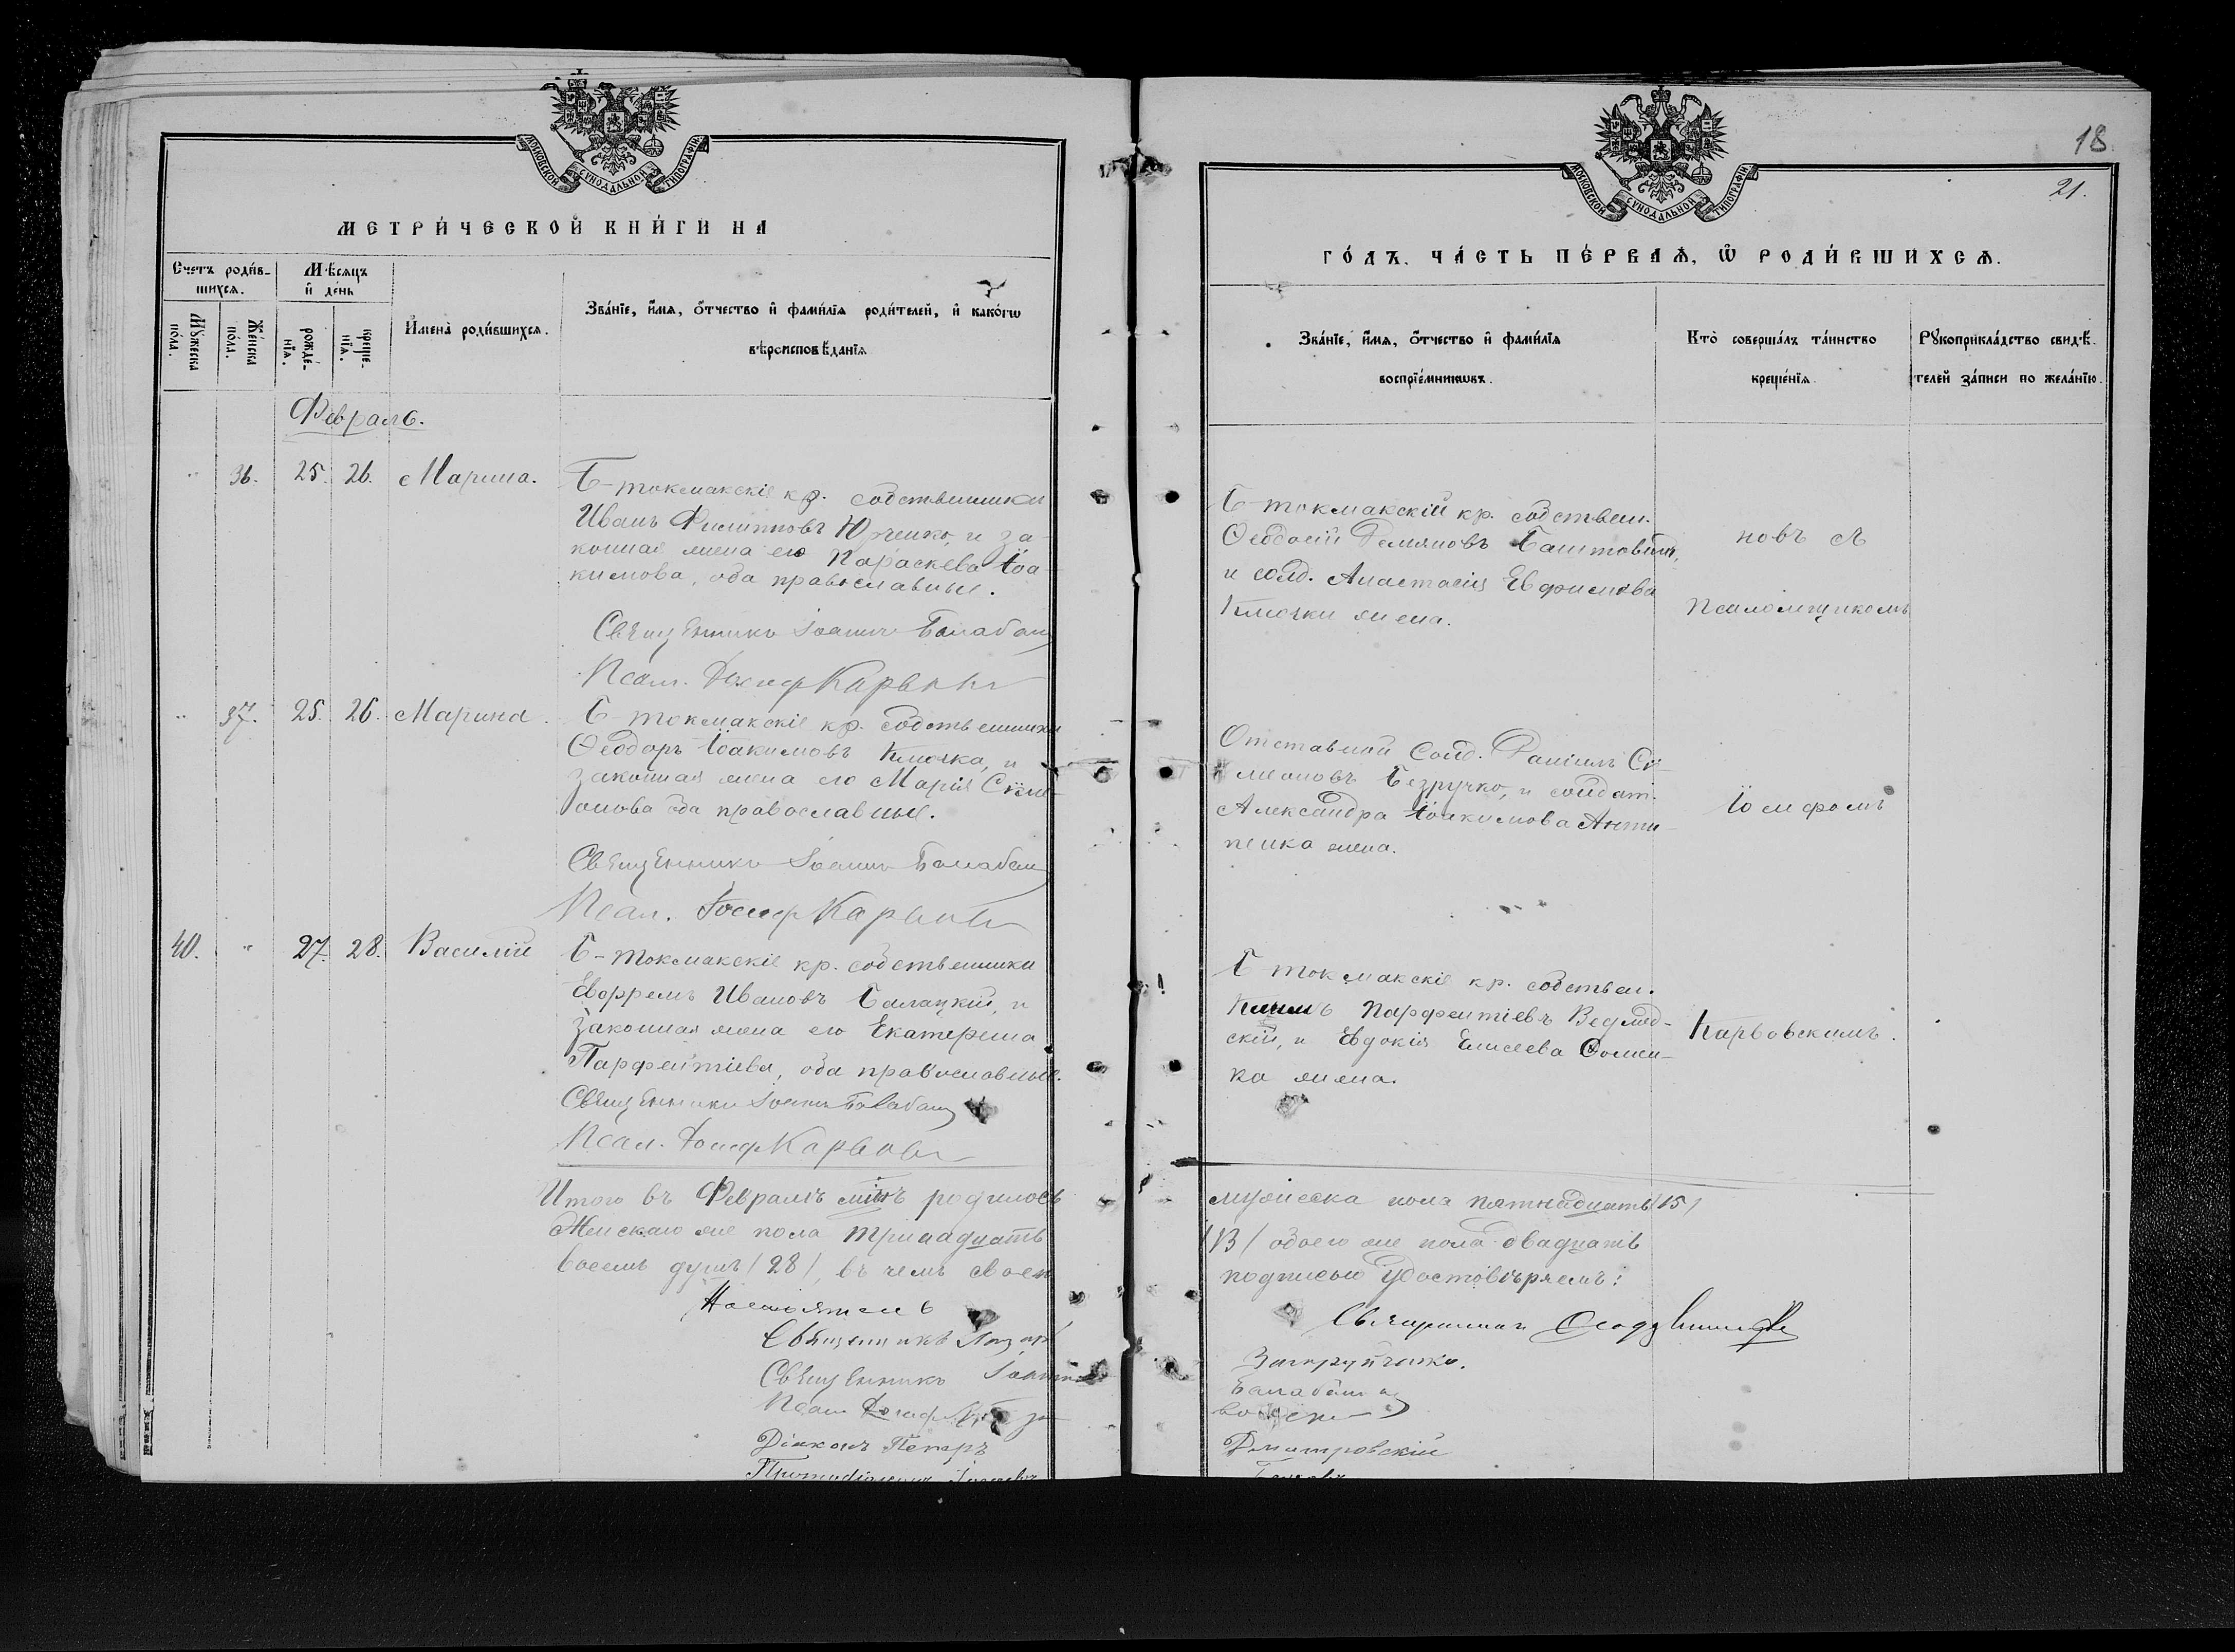 МОСКОВСКОЙ СУНОДАЛЬНОЙ ТИПОГРАФІИ
МЕТРИ́ЧЕСКОЙ КНИ́ГИ НА
Счетъ роди́вшихся.
Му́жеска по́ла.
Же́нска по́ла.
Мѣсяцъ и де́нь
рожде́нїя.
креще́нїя.
Имена̀ роди́вшихся.
Зва́нїе, и́мя, о́тчество и фами́лїя роди́телей, и како́гѡ
вѣроисповѣ́данїя
Февраль.
36. 25. 26. Марина.
Б-токмакскіе кр. собственники
Иванъ Филипповъ Юрченко, и за-
конная жена его Параскева Іоа-
кимова, оба православные.
Священникъ Іоаннъ Балабан
Псал. Іосиф Карвов
37. 25. 26. Марина.
Б-токмакскіе кр. собственники
Ѳеодоръ Іоакимовъ Клочка, и
законная жена его Марія Сѵме-
онова оба православные.
Священникъ Іоаннъ Балабан
Псал. Іосиф Карвов
40. 27. 28. Василій
Б-токмакскіе кр. собственники
Евфремъ Ивановъ Балацкій, и
законная жена его Екатерина
Парфентіева, оба православные.
Священникъ Іоаннъ Балабан
Псал. Іосиф Карвов
Итого въ Февралѣ м-цѣ родилось
Женскаго же пола тринадцать
восемь душъ (28), въ чемъ своею
Настоятель
Священникъ
Священникъ Іоаннъ
Псал. Іосиф
Діаконъ Петръ
18
21.
МОСКОВСКОЙ СУНОДАЛЬНОЙ ТИПОГРАФІИ
ГО́ДЪ. ЧА́СТЬ ПЕ́РВАЯ, Ѡ РОДИ́ВШИХСЯ.
Зва́нїе, и́мя, о́тчество и фами́лїя
воспрїе́мникѡвъ.
Кто̀ соверша́лъ та́инство
креще́нїя.
Рукоприкла́дство свидѣ́-
телей за́писи по жела́нїю.
Б-токмакскій кр. собствен.
Ѳеодосій Демяновъ Баштовый,
и солд. Анастасія Евфимова
Клочки жена.
новъ съ
Псаломщикомъ
Отставной Солд. Даніилъ Сѵ-
меоновъ Безручко, и солдат.
Александра Іоакимова Анти-
пенка жена.
Іосифомъ
Б-токмакскіе кр. собствен.
Парфентіевъ Ведмед-
скій, и Евдокія Елисеева Сомен-
ка жена.
Карвовскимъ.
мужеска пола пятнадцать (15)
(13) обоего же пола двадцать
подписью удостовѣряемъ:
Балабанъ
Дмитровскій